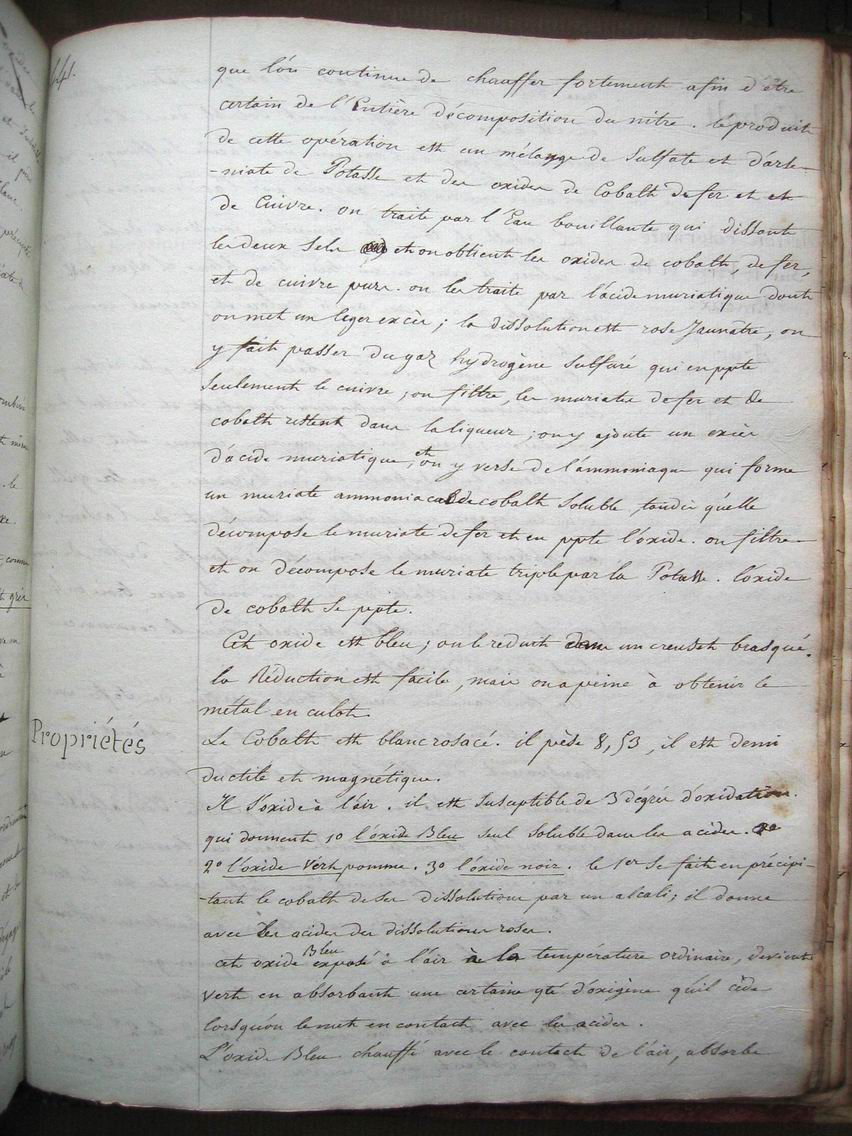 44.
que l'on continue de chauffer fortement afin d'être
certain de l'Entière décomposition du nitre. le produit
de cette opération est un mélange de Sulfate et d'arse-
-niate de Potasse et des oxides de Cobalt de fer et et
de Cuivre. on traite par l'Eau bouillante qui dissout
les deux Sels et on obtient les oxides de cobalt, de fer,
et de cuivre purs. on les traite par l'acide muriatique dont
on met un leger excès; la dissolution est rose Jaunatre, on
y fait passer du gaz hydrogène Sulfuré qui en ppte
seulement le cuivre, on filtre, les muriates de fer et de
cobalt restent dans la liqueur; on y ajoute un excès
d'acide muriatique, et on y verse de l'ammoniaque qui forme
un muriate ammoniacal de cobalt soluble, tandis qu'elle
décompose le muriate de fer et en ppte l'oxide. on filtre
et on décompose le muriate triple par la Potasse. l'oxide
de cobalt se ppte.
Cet oxide est bleu; on le reduit dans un creuset brasqué.
la Réduction est facile, mais on a peine à obtenir le
métal en culot.
Propriétés
Le Cobalt est blanc rosacé. il pèse 8,53, il est demi
ductile et magnétique.
Il s'oxide à l'air. il est susceptible de 3 dégrés d'oxidation.
qui donnent 1o l'oxide Bleu seul soluble dans les acides.
2o l'oxide Vert pomme. 3o l'oxide noir. le 1er se fait en précipi-
-tant le cobalt de ses dissolutions par un alcali; il donne
avec les acides des dissolutions roses.
cet oxide Bleu exposé à l'air à la température ordinaire, devient
vert en absorbant une certaine qté d'oxigène qu'il cède
lorsqu'on le met en contact avec les acides.
L'oxide Bleu chauffé avec le contact de l'air, absorbe